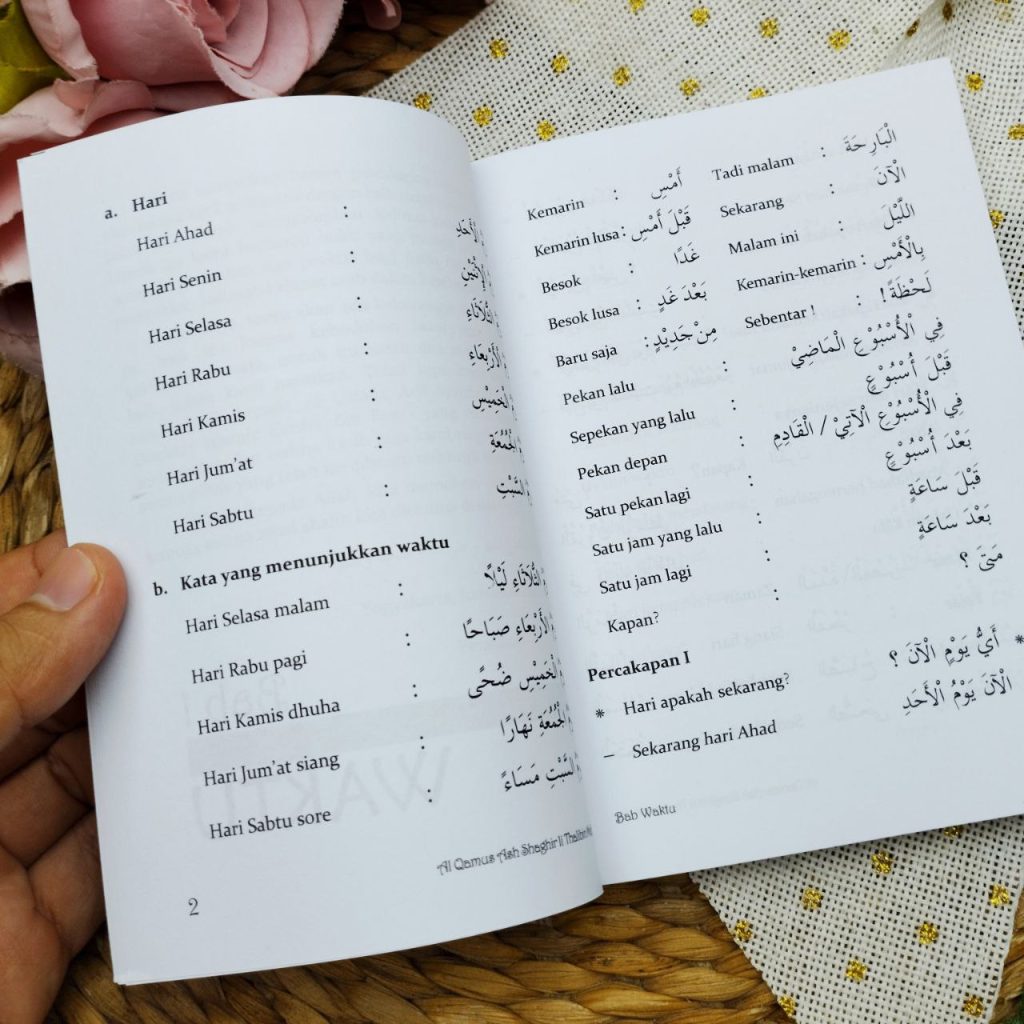 a. Hari
Hari Ahad : الْأَحَدِ
Hari Senin : الْإِثْنَيْنِ
Hari Selasa : الثُّلَاثَاءِ
Hari Rabu : الْأَرْبَعَاءِ
Hari Kamis : الْخَمِيْسِ
Hari Jum'at : الْجُمُعَةِ
Hari Sabtu : السَّبْتِ
b. Kata yang menunjukkan waktu
Hari Selasa malam : الثُّلَاثَاءِ لَيْلًا
Hari Rabu pagi : الْأَرْبَعَاءِ صَبَاحًا
Hari Kamis dhuha : الْخَمِيْسِ ضُحًى
Hari Jum'at siang : الْجُمُعَةِ نَهَارًا
Hari Sabtu sore : السَّبْتِ مَسَاءً
2
Al Qamus Ash Shaghir li
Kemarin : أَمْسِ Tadi malam : الْبَارِحَةَ
Kemarin lusa : قَبْلَ أَمْسِ Sekarang : الْآنَ
Besok : غَدًا Malam ini : اللَّيْلَ
Besok lusa : بَعْدَ غَدٍ Kemarin-kemarin : بِالْأَمْسِ
Baru saja : مِنْ جَدِيْدٍ Sebentar ! : لَحْظَةً !
Pekan lalu : فِي الْأُسْبُوْعِ الْمَاضِيْ
Sepekan yang lalu : قَبْلَ أُسْبُوْعٍ
Pekan depan : فِي الْأُسْبُوْعِ الْآتِيْ / الْقَادِمِ
Satu pekan lagi : بَعْدَ أُسْبُوْعٍ
Satu jam yang lalu : قَبْلَ سَاعَةٍ
Satu jam lagi : بَعْدَ سَاعَةٍ
Kapan? : مَتَى ؟
Percakapan I
* Hari apakah sekarang? أَيُّ يَوْمٍ الْآنَ ؟ *
– Sekarang hari Ahad الْآنَ يَوْمُ الْأَحَدِ
Bab Waktu